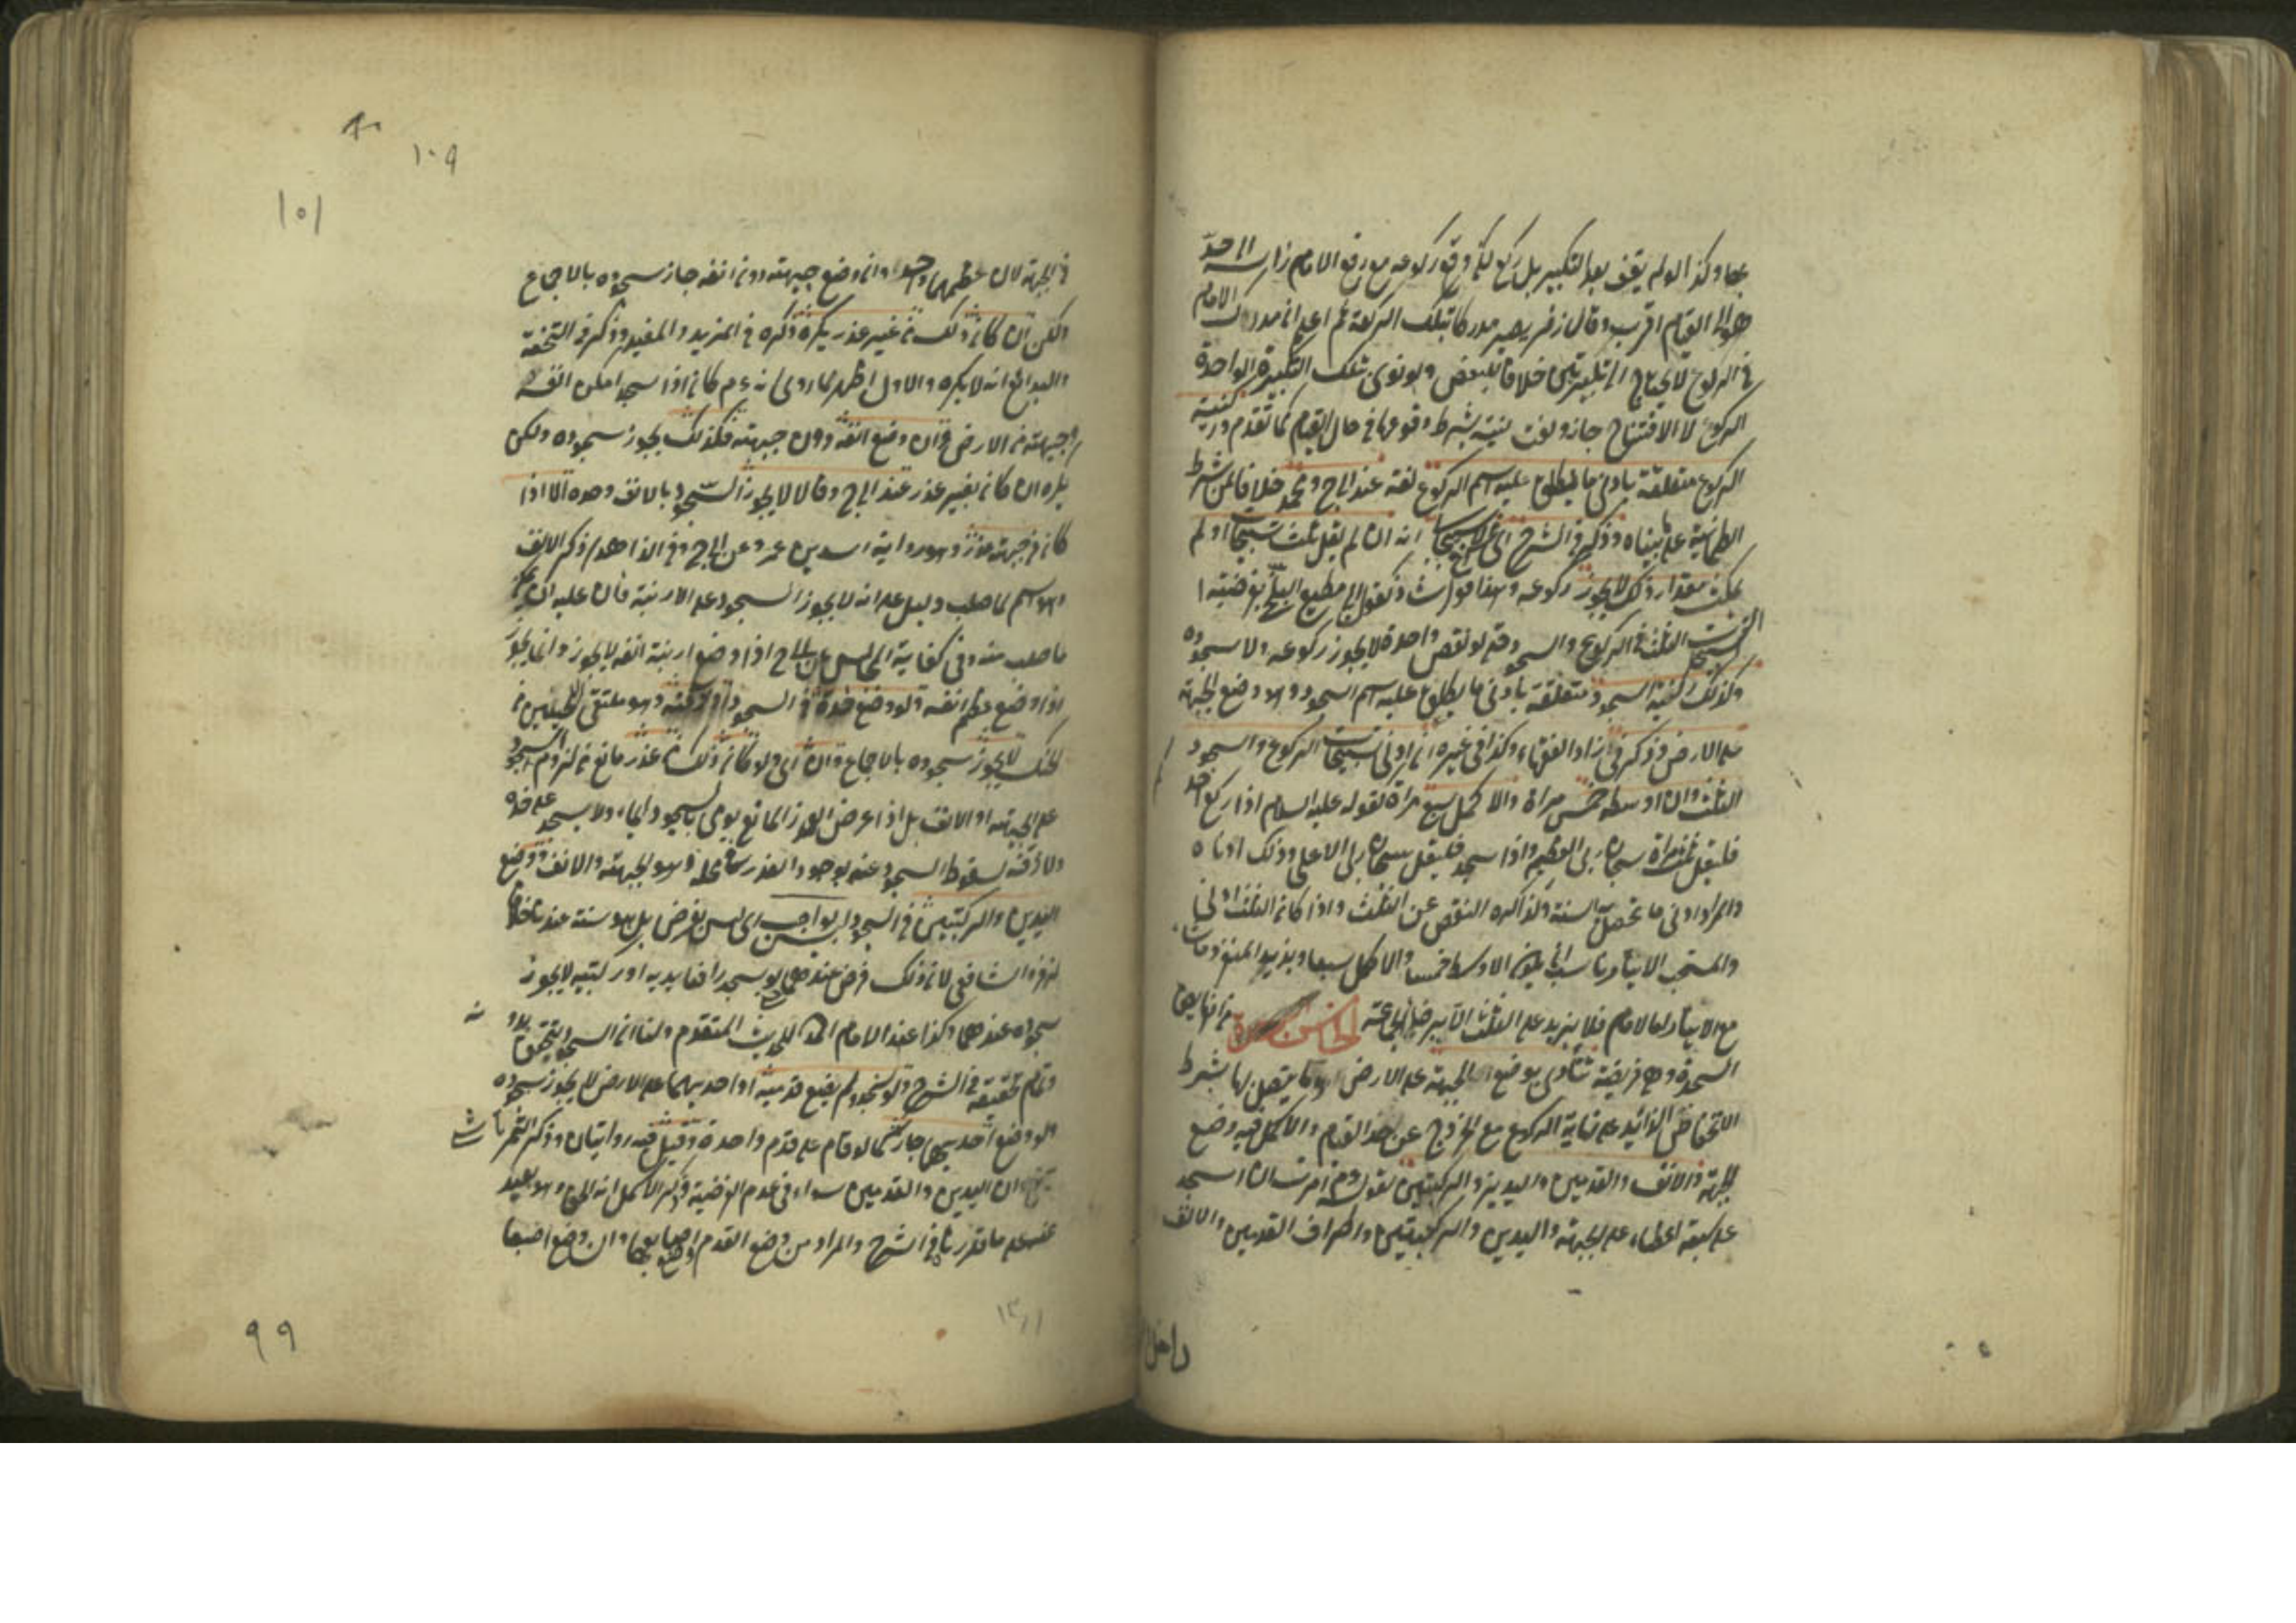 بها وكذا لو لم يقف بعد التكبير بل ركع لكن وقع ركوعه مع رفع الامام راسه الى حد
هو الى القيام اقرب وقال زفر يصير مدركا بتلك الركعة ثم اعلم ان مدرك الامام
في الركوع لا يحتاج الى تكبيرتين خلافا للبعض ولو نوى بتلك التكبيرة الواحدة
الركوع لا الافتتاح جاز ولغت نيته بشرط وقوعها في حال القيام كما تقدم وركنية
الركوع متعلقة بادنى ما يطلق عليه اسم الركوع لغة عند ابي ح ومحمد خلافا لمن شرط
الطمانينة على ما بيناه وذكر في الشرح انه ان لم يقل ثلث تسبيحات او لم
يمكث مقدار ذلك لا يجوز ركوعه وهذا كقول ابي مطيع البلخي بفرضية
التسبيحات الثلث في الركوع والسجود حتى لو نقص واحدة لا يجوز ركوعه ولا سجوده
وكذلك ركنية السجود متعلقة بأدنى ما يطلق عليه اسم السجود وهو وضع الجبهة
على الارض وذكر في زاد الفقهاء وكذا في غيره ان ادنى تسبيحات الركوع والسجود
الثلث وان اوسطه خمس مرات والاكمل سبع مرات لقوله عليه السلام اذا ركع احدكم
فليقل ثلث مرات سبحان ربي العظيم واذا سجد فليقل سبحان ربي الاعلى وذلك ادناه
والمراد ادنى ما تحصل به السنة ولذا كره النقص عن الثلث واذا كان الثلث ادنى
والمستحب الايتار ناسب ان يكون الاوسط خمسا والاكمل سبعا ويزيد المنفرد ما شاء
مع الايتار اما الامام فلا يزيد على الثلث الا برضا الجماعة الخامس من الفرايض
السجدة وهي فريضة تتأدى بوضع الجبهة على الارض وما يتصل بها بشرط
الانخفاض الزائد على نهاية الركوع مع الخروج عن حد القيام والاكمل فيه وضع
الجبهة والانف والقدمين واليدين والركبتين لقوله ع م امرت ان اسجد
على سبعة اعظاء على الجبهة واليدين والركبتين واطراف القدمين والانف
داخل
١٠٩
١٥١
في الجبهة لان عظمهما واحد وان وضع جبهته دون انفه جاز سجوده بالاجماع
ولكن ان كان ذلك من غير عذر يكره ذكره في المزيد والمفيد وذكر في التحفة
والبدائع انه لا يكره والاول اظهر لما روى انه ع م كان اذا سجد امكن انفه
وجبهته من الارض وان وضع انفه دون جبهته فكذلك يجوز سجوده ولكن
يكره ان كان بغير عذر عند ابي ح وقالا لا يجوز السجود بالانف وحده الا اذا
كان في جبهته عذر وهو رواية اسد بن عمرو عن ابي ح وفي الزاهدي ذكر الانف
وهو اسم لما صلب دليل على انه لا يجوز السجود على الارنبة فان عليه ان يمكن
ما صلب منه وفي كفاية المجالس عن ابي ح اذا وضع ارنبة انفه لا يجوز وانما يجوز
اذا وضع عظم انفه ولو وضع خده في السجود او ذقنه وهو ملتقى اللحيين من
الحنك لا يجوز سجوده بالاجماع وان اي ولو كان ذلك من عذر مانع من لزوم السجود
على الجبهة او الانف بل اذا عرض العذر المانع يومي بالسجود ايماء ولا يسجد على خده
ولا ذقنه لسقوط السجود عنه بوجود العذر في محله وهو الجبهة والانف ووضع
اليدين والركبتين في السجود ليس بواجب اي ليس بفرض بل هو سنة عندنا خلافا
لزفر والشافعي لان ذلك فرض عندهما حتى لو سجد رافعا يديه او ركبتيه لا يجوز
سجوده عندهما وكذا عند الامام احمد للحديث المتقدم ولنا ان السجود يتحقق بدونه
وتمام تحقيقه في الشرح ولو سجد ولم يضع قدميه او احديهما على الارض لا يجوز سجوده
ولو وضع احديهما جاز كما لو قام على قدم واحدة وقيل فيه روايتان وذكر التمرتاشي
ان اليدين والقدمين سواء في عدم الفرضية وذكر الاكمل انه الحق وهو بعيد
عنه على ما تقرر في الشرح والمراد من وضع القدم وضع اصابعها وان وضع اصبعا
٩٩